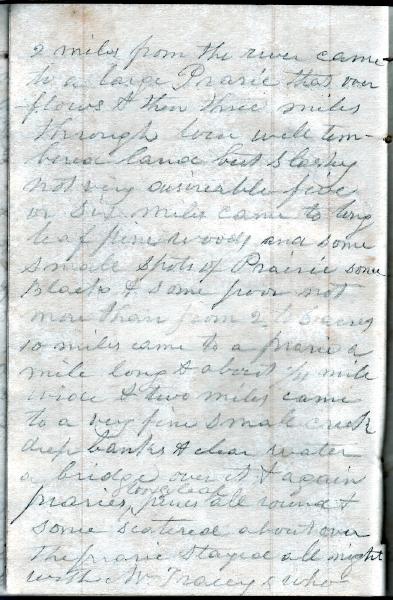 2 miles from the river came
to a large Prarie that over
flows & then three miles
through low well tim-
bered land but slashy
not very desireable five
or six miles came to long
leaf pine woods and some
small spots of Prairie some
Black & some poor not
more than from 2 to 3 acres
10 miles came to a prarie a
mile long & about 1/4 mile
wide & two miles came
to a very fine small creek
deep banks & clear water
a bridge over it & again
praries, long leaf pines all round &
some scatered about over
the prarie stayed all night
with Mr Tracey & who